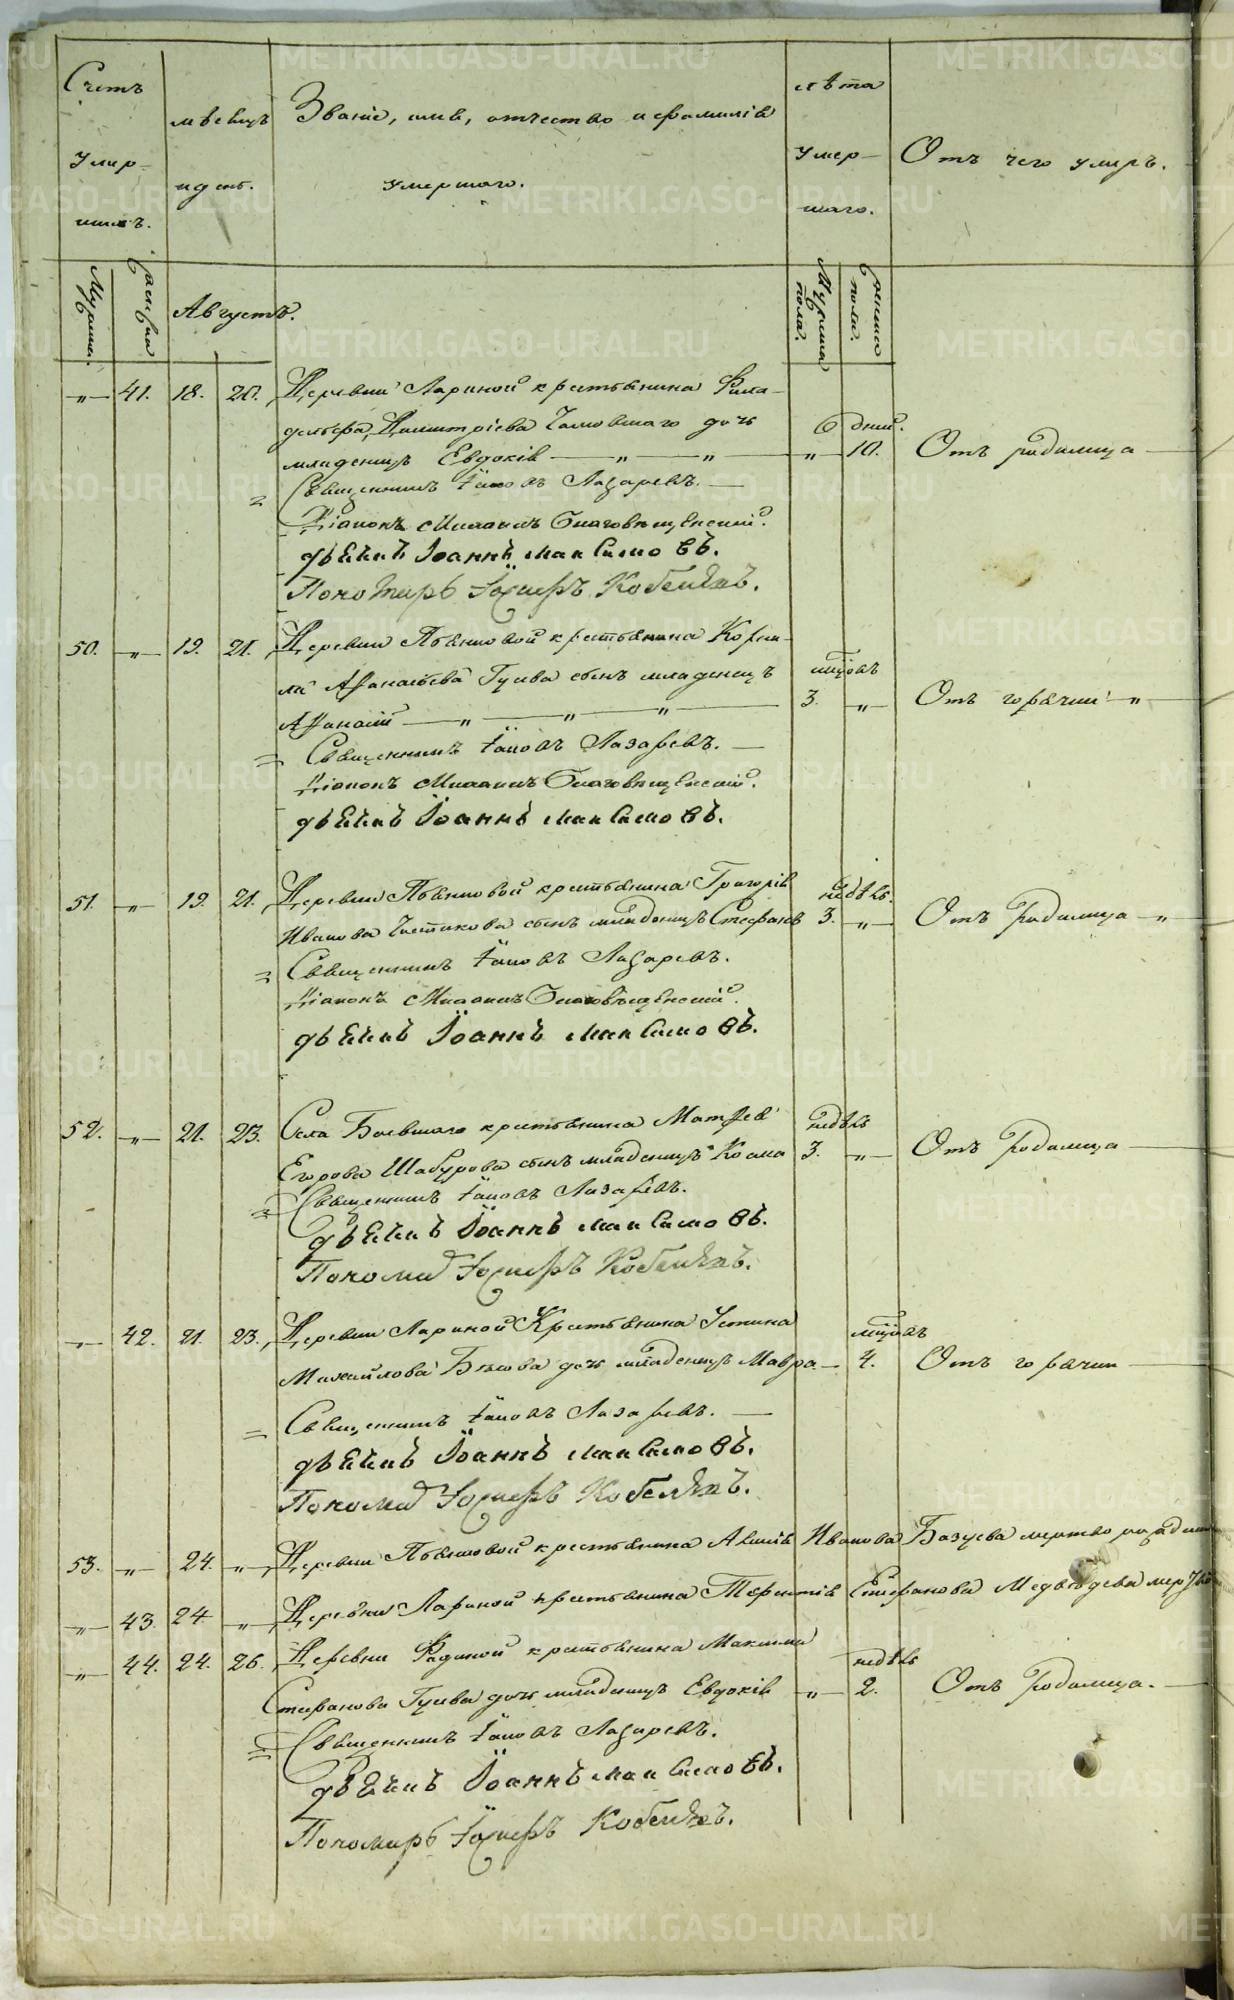 Счетъ
умер-
шихъ.
мѣсяцъ
и дни.
Званіе, имя, отчество и фамилія
умершаго.
лѣта
умер-
шаго.
Отъ чего умеръ.
Мужска.
Женска
Августъ.
Мужска
пола.
Женска
пола.
-„- 41. 18. 20. Деревни Лариной крестьянина Фила-
дельфа Димитріева дочь 6 дней.
младенецъ Евдокія -„-„- -„- 10. Отъ родимца
= Священникъ Іаковъ Лазаревъ.
Діаконъ Михаилъ Благовѣщенскій.
дьячикъ Іоаннъ Максимовъ.
Пономарь Кобелевъ.
50. -„- 19. 21. Деревни Пьянковой крестьянина Корни-
ла Аѳанасьева Гуева сынъ младенецъ мѣсяцовъ
Аѳанасій -„-„-„- 3. -„- Отъ горячки -„-
= Священникъ Іаковъ Лазаревъ.
Діаконъ Михаилъ Благовѣщенскій.
дьячикъ Іоаннъ Максимовъ.
51. -„- 19. 21. Деревни Пьянковой крестьянина Григорія недѣль.
Иванова Чистякова сынъ младенецъ Стефанъ 3. -„- Отъ Родимца -„-
= Священникъ Іаковъ Лазаревъ.
Діаконъ Михаилъ Благовѣщенскій.
дьячикъ Іоаннъ Максимовъ.
52. -„- 21. 23. Села Боевшаго крестьянина Матѳея недѣль
Егорова Шабурова сынъ младенецъ Косма 3. -„- Отъ Родимца
= Священникъ Іаковъ Лазаревъ.
дьячикъ Іоаннъ Максимовъ.
Пономарь Кобелевъ.
-„- 42. 21. 23. Деревни Лариной Крестьянина Устина мѣсяцовъ
Михайлова дочь младенецъ Мавра - 4. Отъ горячки
= Священникъ Іаковъ Лазаревъ.
дьячикъ Іоаннъ Максимовъ.
Пономарь Кобелевъ.
53. -„- 24. -„- Деревни Пьянковой крестьянина Иванова Базуева мертво
-„- 43. 24 -„- Деревни Лариной крестьянина Терентія Стефанова Медвѣдева
-„- 44. 24. 26. Деревни крестьянина Максима недѣль
Стефанова Гуева дочь младенецъ Евдокія -„- 2. Отъ Родимца.
= Священникъ Іаковъ Лазаревъ.
дьячикъ Іоаннъ Максимовъ.
Пономарь Кобелевъ.
METRIKI.GASO-URAL.RU